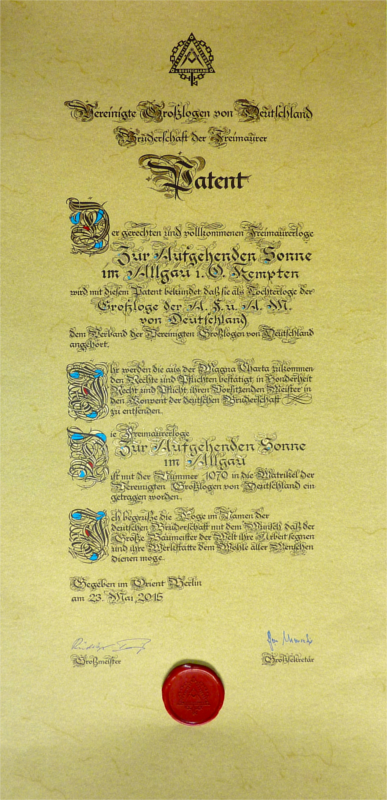 Vereinigte Großlogen von Deutschland
Bruderschaft der Freimaurer
Patent
Der gerechten und vollkommenen Freimaurerloge
Zur Aufgehenden Sonne
im Allgäu i. O. Kempten
wird mit diesem Patent bekundet daß sie als Tochterloge der
Großloge der A. F. u. A. M.
von Deutschland
dem Verband der Vereinigten Großlogen von Deutschland
angehört.
Ihr werden die aus der Magna Charta zukommen
den Rechte und Pflichten bestätigt, in Sonderheit
Recht und Pflicht ihren Vorsitzenden Meister in
den Konvent der deutschen Bruderschaft
zu entsenden.
Die Freimaurerloge
Zur Aufgehenden Sonne
im Allgäu
ist mit der Nummer 1070 in die Matrikel der
Vereinigten Großlogen von Deutschland ein
getragen worden.
Ich begrüße die Loge im Namen der
deutschen Bruderschaft mit dem Wunsch daß der
Große Baumeister der Welt ihre Arbeit segnen
und ihre Werkstätte dem Wohle aller Menschen
dienen möge.
Gegeben im Orient Berlin
am 23. Mai, 2015
Großmeister
Großsekretär